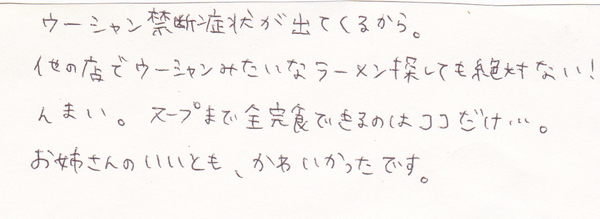 ウーシャン禁断症状が出てくるから。
他の店でウーシャンみたいなラーメン探しても絶対ない!
んまい。スープまで全完食できるのはココだけ…。
お姉さんのいいとも、かわいかったです。